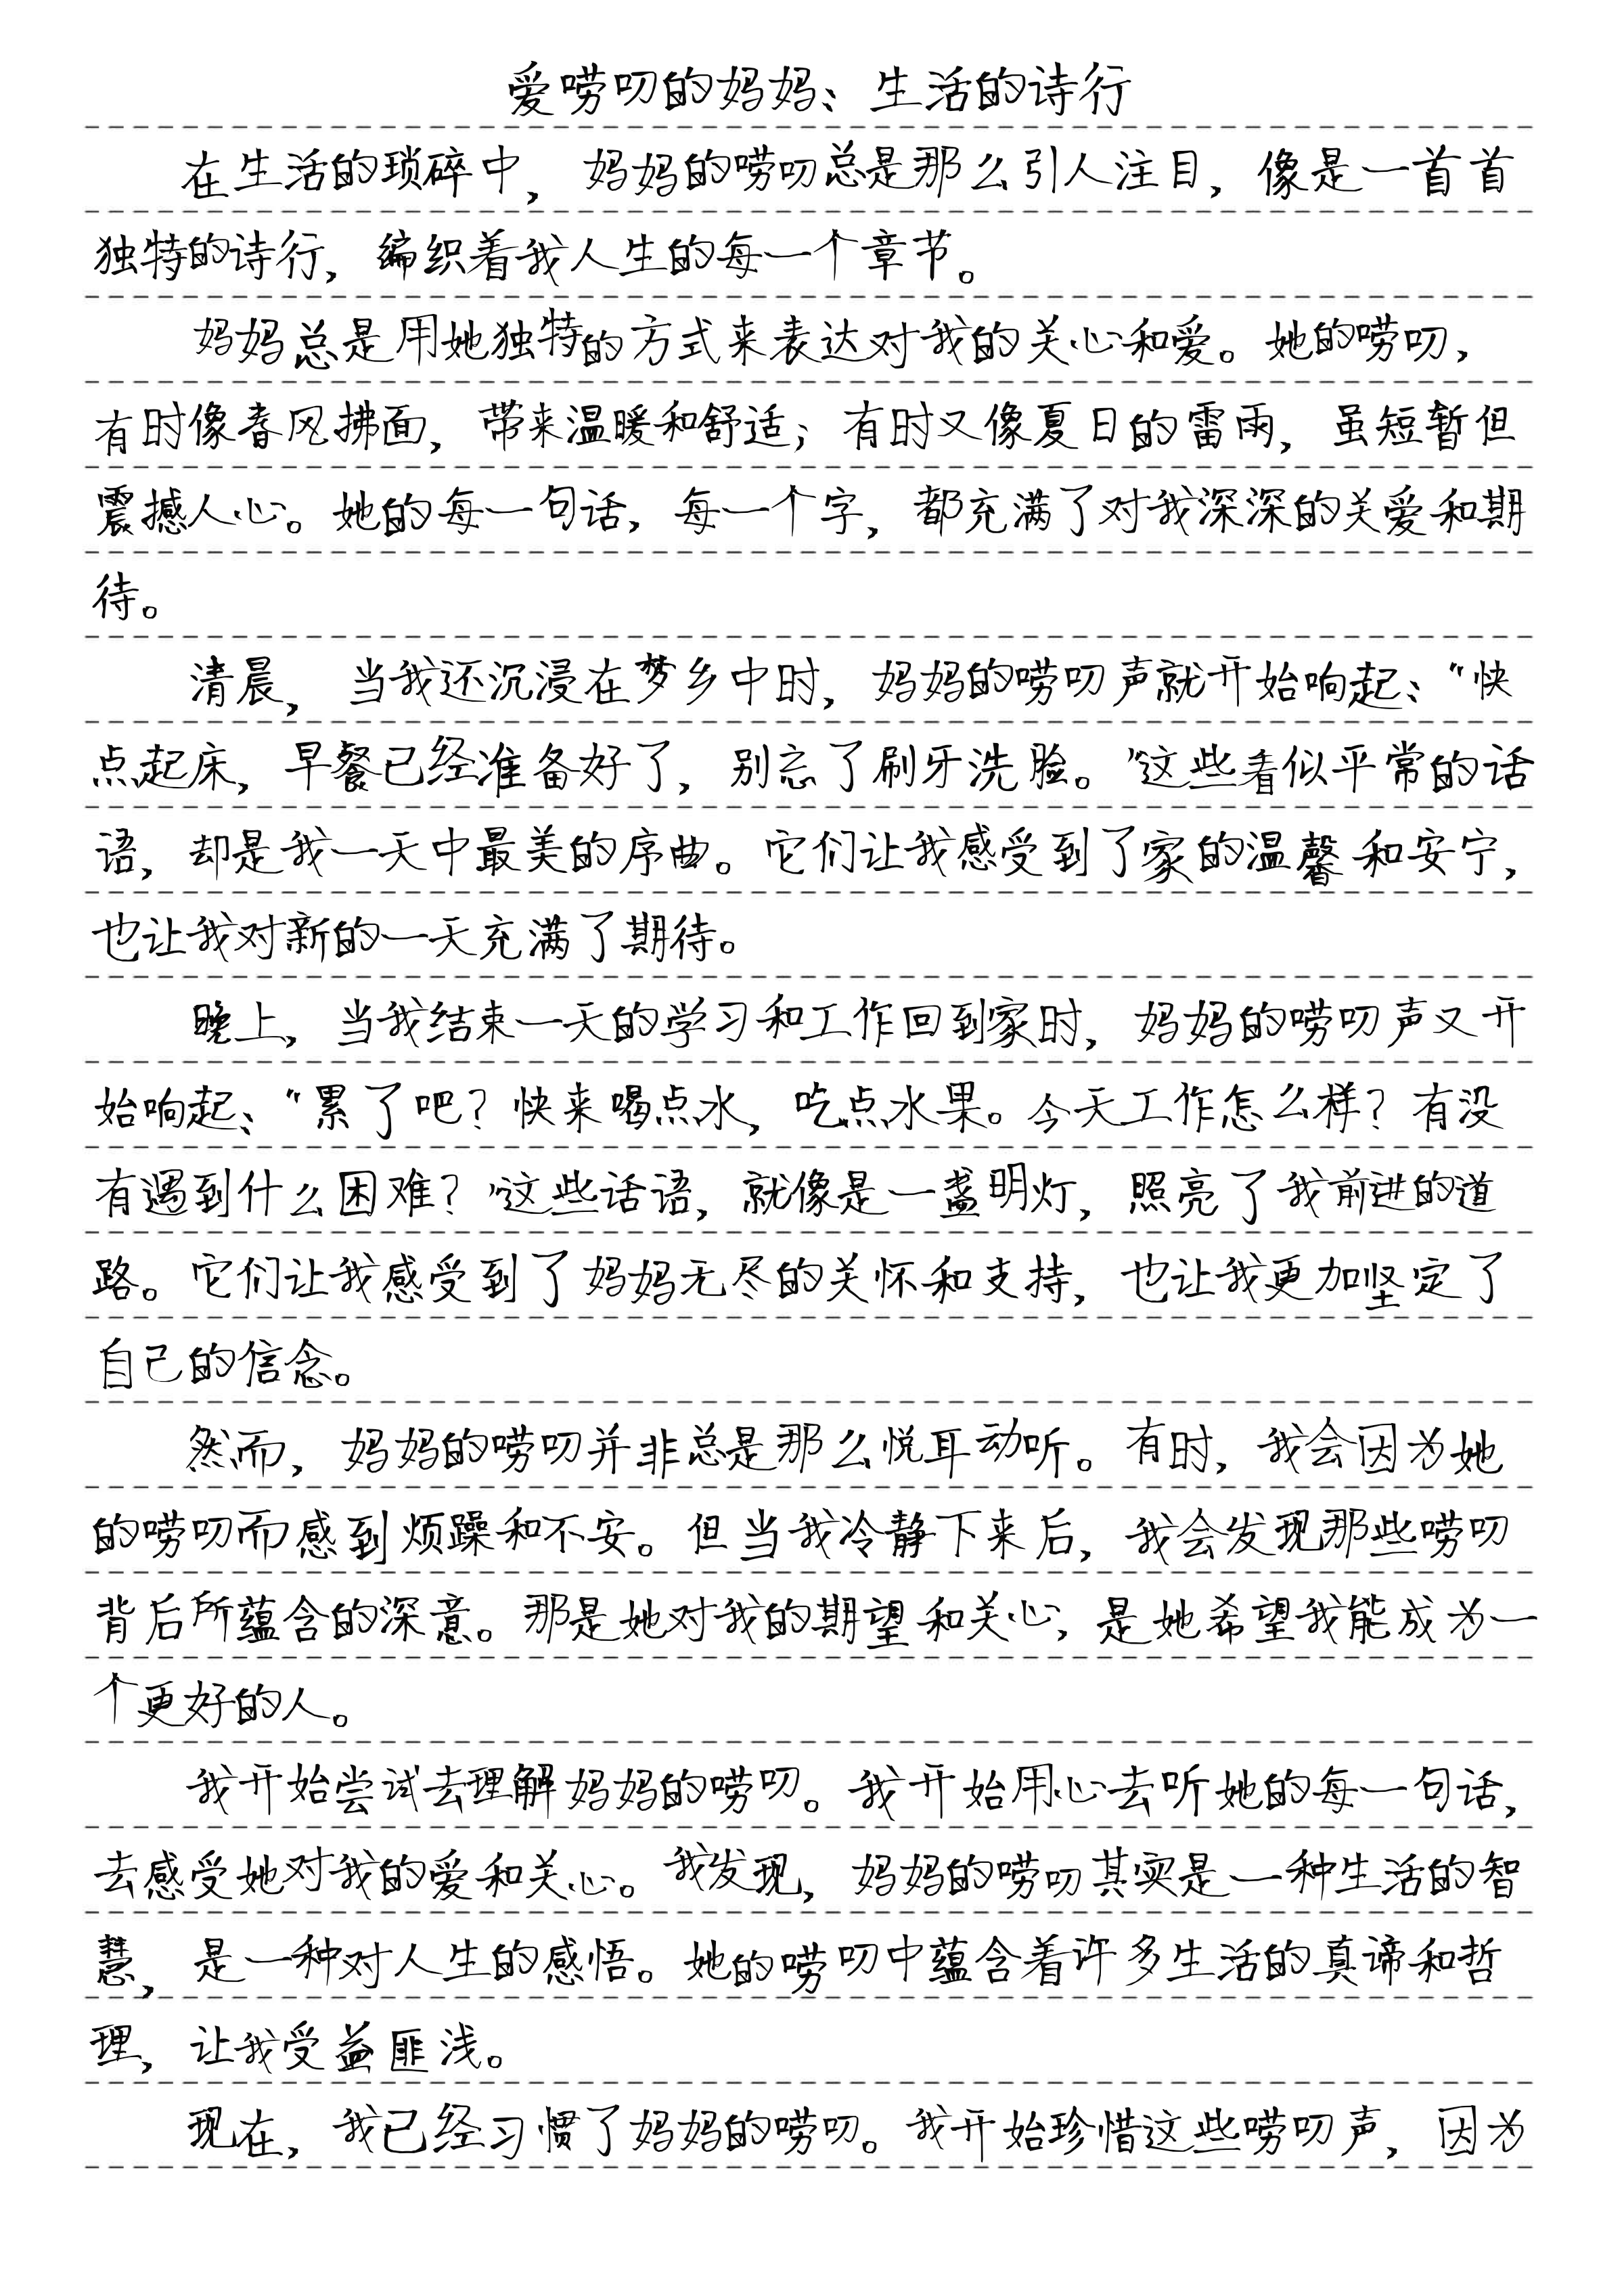 爱唠叨的妈妈、生活的诗行
在生活的琐碎中，妈妈的唠叨总是那么引人注目，像是一首首
独特的诗行，编织着我人生的每一个章节。
妈妈总是用她独特的方式来表达对我的关心和爱。她的唠叨，
有时像春风拂面，带来温暖和舒适；有时又像夏日的雷雨，虽短暂但
震撼人心。她的每一句话，每一个字，都充满了对我深深的关爱和期
待。
清晨，当我还沉浸在梦乡中时，妈妈的唠叨声就开始响起、“快
点起床，早餐已经准备好了，别忘了刷牙洗脸。”这些看似平常的话
语，却是我一天中最美的序曲。它们让我感受到了家的温馨和安宁，
也让我对新的一天充满了期待。
晚上，当我结束一天的学习和工作回到家时，妈妈的唠叨声又开
始响起、“累了吧？快来喝点水，吃点水果。今天工作怎么样？有没
有遇到什么困难？”这些话语，就像是一盏明灯，照亮了我前进的道
路。它们让我感受到了妈妈无尽的关怀和支持，也让我更加坚定了
自己的信念。
然而，妈妈的唠叨并非总是那么悦耳动听。有时，我会因为她
的唠叨而感到烦躁和不安。但当我冷静下来后，我会发现那些唠叨
背后所蕴含的深意。那是她对我的期望和关心，是她希望我能成为一
个更好的人。
我开始尝试去理解妈妈的唠叨。我开始用心去听她的每一句话，
去感受她对我的爱和关心。我发现，妈妈的唠叨其实是一种生活的智
慧，是一种对人生的感悟。她的唠叨中蕴含着许多生活的真谛和哲
理，让我受益匪浅。
现在，我已经习惯了妈妈的唠叨。我开始珍惜这些唠叨声，因为